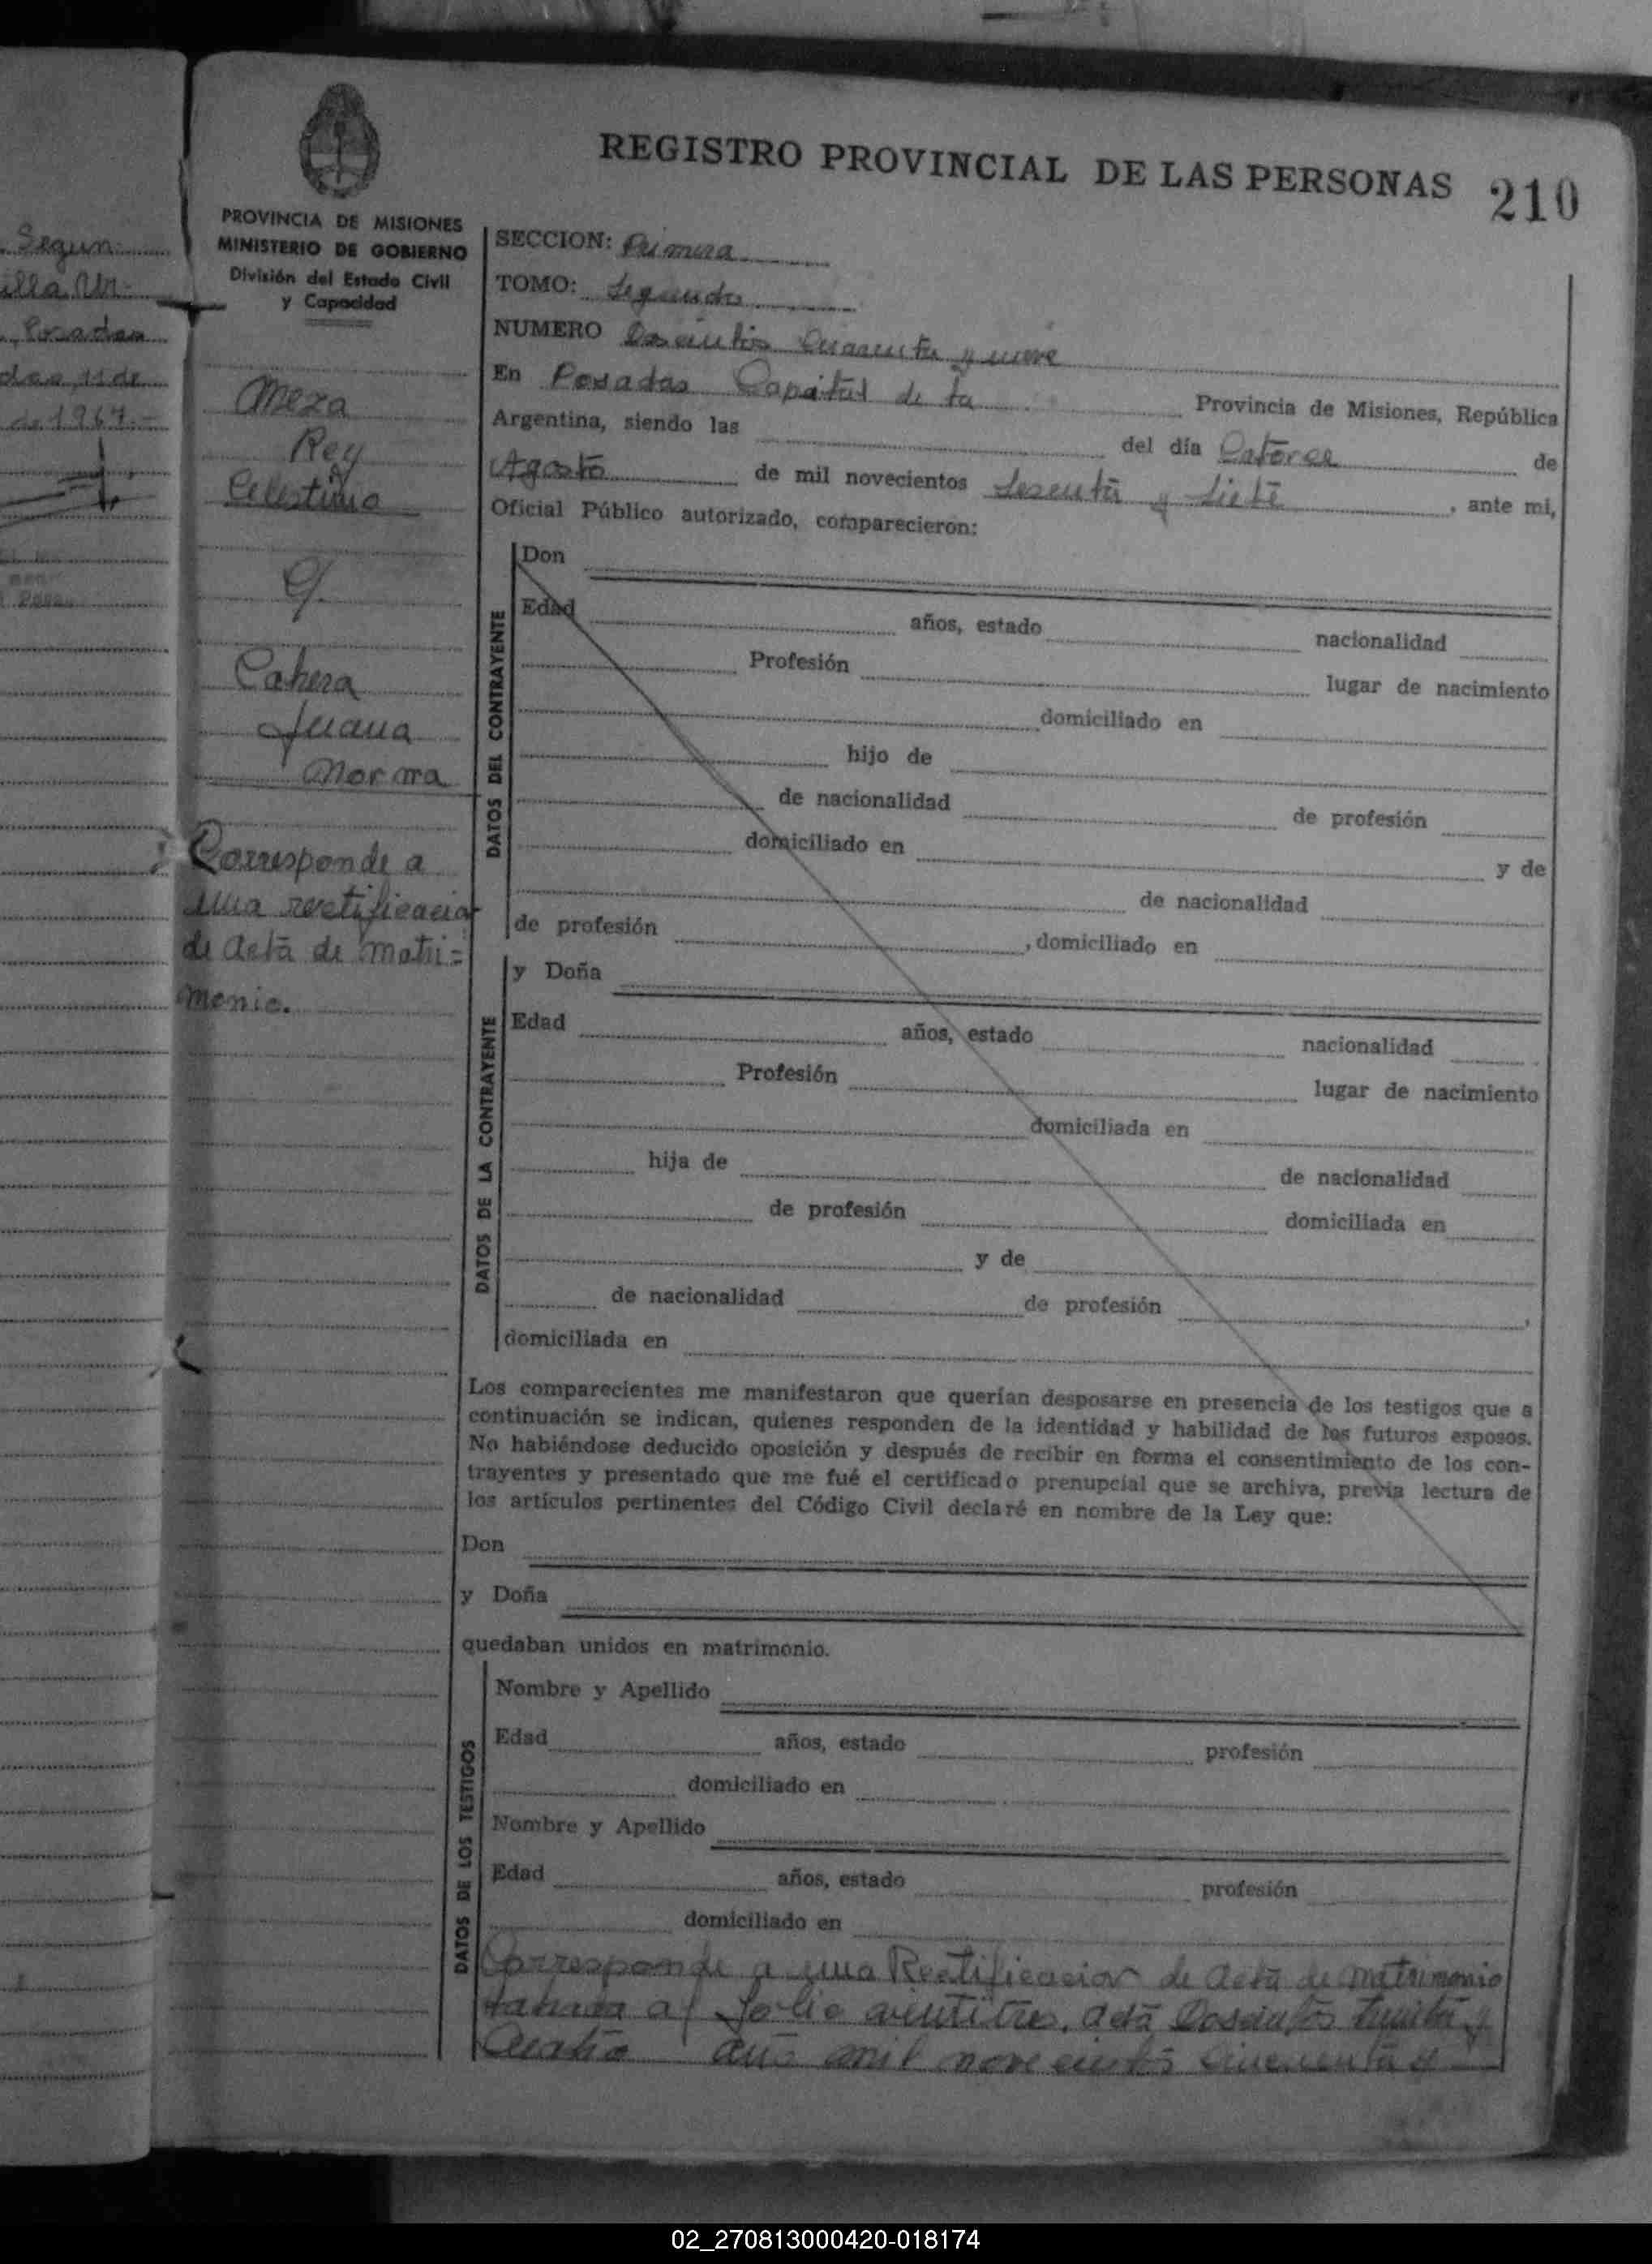 REGISTRO PROVINCIAL DE LAS PERSONAS 210
PROVINCIA DE MISIONES
MINISTERIO DE GOBIERNO
División del Estado Civil
y Capacidad
Segun
Posadas
11 de
de 1967.-
Meza
Rey
Celestino
c/.
Juana
Norma
Corresponde a
una rectificacion
de acta de matri=
monio.
SECCION: Primera
TOMO: Segundo
NUMERO Doscientos Cuarenta y nueve
En Posadas Capital de la Provincia de Misiones, República
Argentina, siendo las del día Catorce de
Agosto de mil novecientos Sesenta y Siete, ante mi,
Oficial Público autorizado, comparecieron:
DATOS DEL CONTRAYENTE
Don
Edad años, estado nacionalidad
Profesión lugar de nacimiento
domiciliado en
hijo de
de nacionalidad de profesión
domiciliado en y de
de nacionalidad
de profesión , domiciliado en
DATOS DE LA CONTRAYENTE
y Doña
Edad años, estado nacionalidad
Profesión lugar de nacimiento
domiciliada en
hija de de nacionalidad
de profesión domiciliada en
y de
de nacionalidad de profesión ,
domiciliada en
Los comparecientes me manifestaron que querían desposarse en presencia de los testigos que a
continuación se indican, quienes responden de la identidad y habilidad de los futuros esposos.
No habiéndose deducido oposición y después de recibir en forma el consentimiento de los con-
trayentes y presentado que me fué el certificado prenupcial que se archiva, previa lectura de
los artículos pertinentes del Código Civil declaré en nombre de la Ley que:
Don
y Doña
quedaban unidos en matrimonio.
DATOS DE LOS TESTIGOS
Nombre y Apellido
Edad años, estado profesión
domiciliado en
Nombre y Apellido
Edad años, estado profesión
domiciliado en
Corresponde a una Rectificacion de acta de matrimonio
al folio veintitres, acta Doscientos treinta y
Cuatro año mil novecientos cincuenta y
02_270813000420-018174